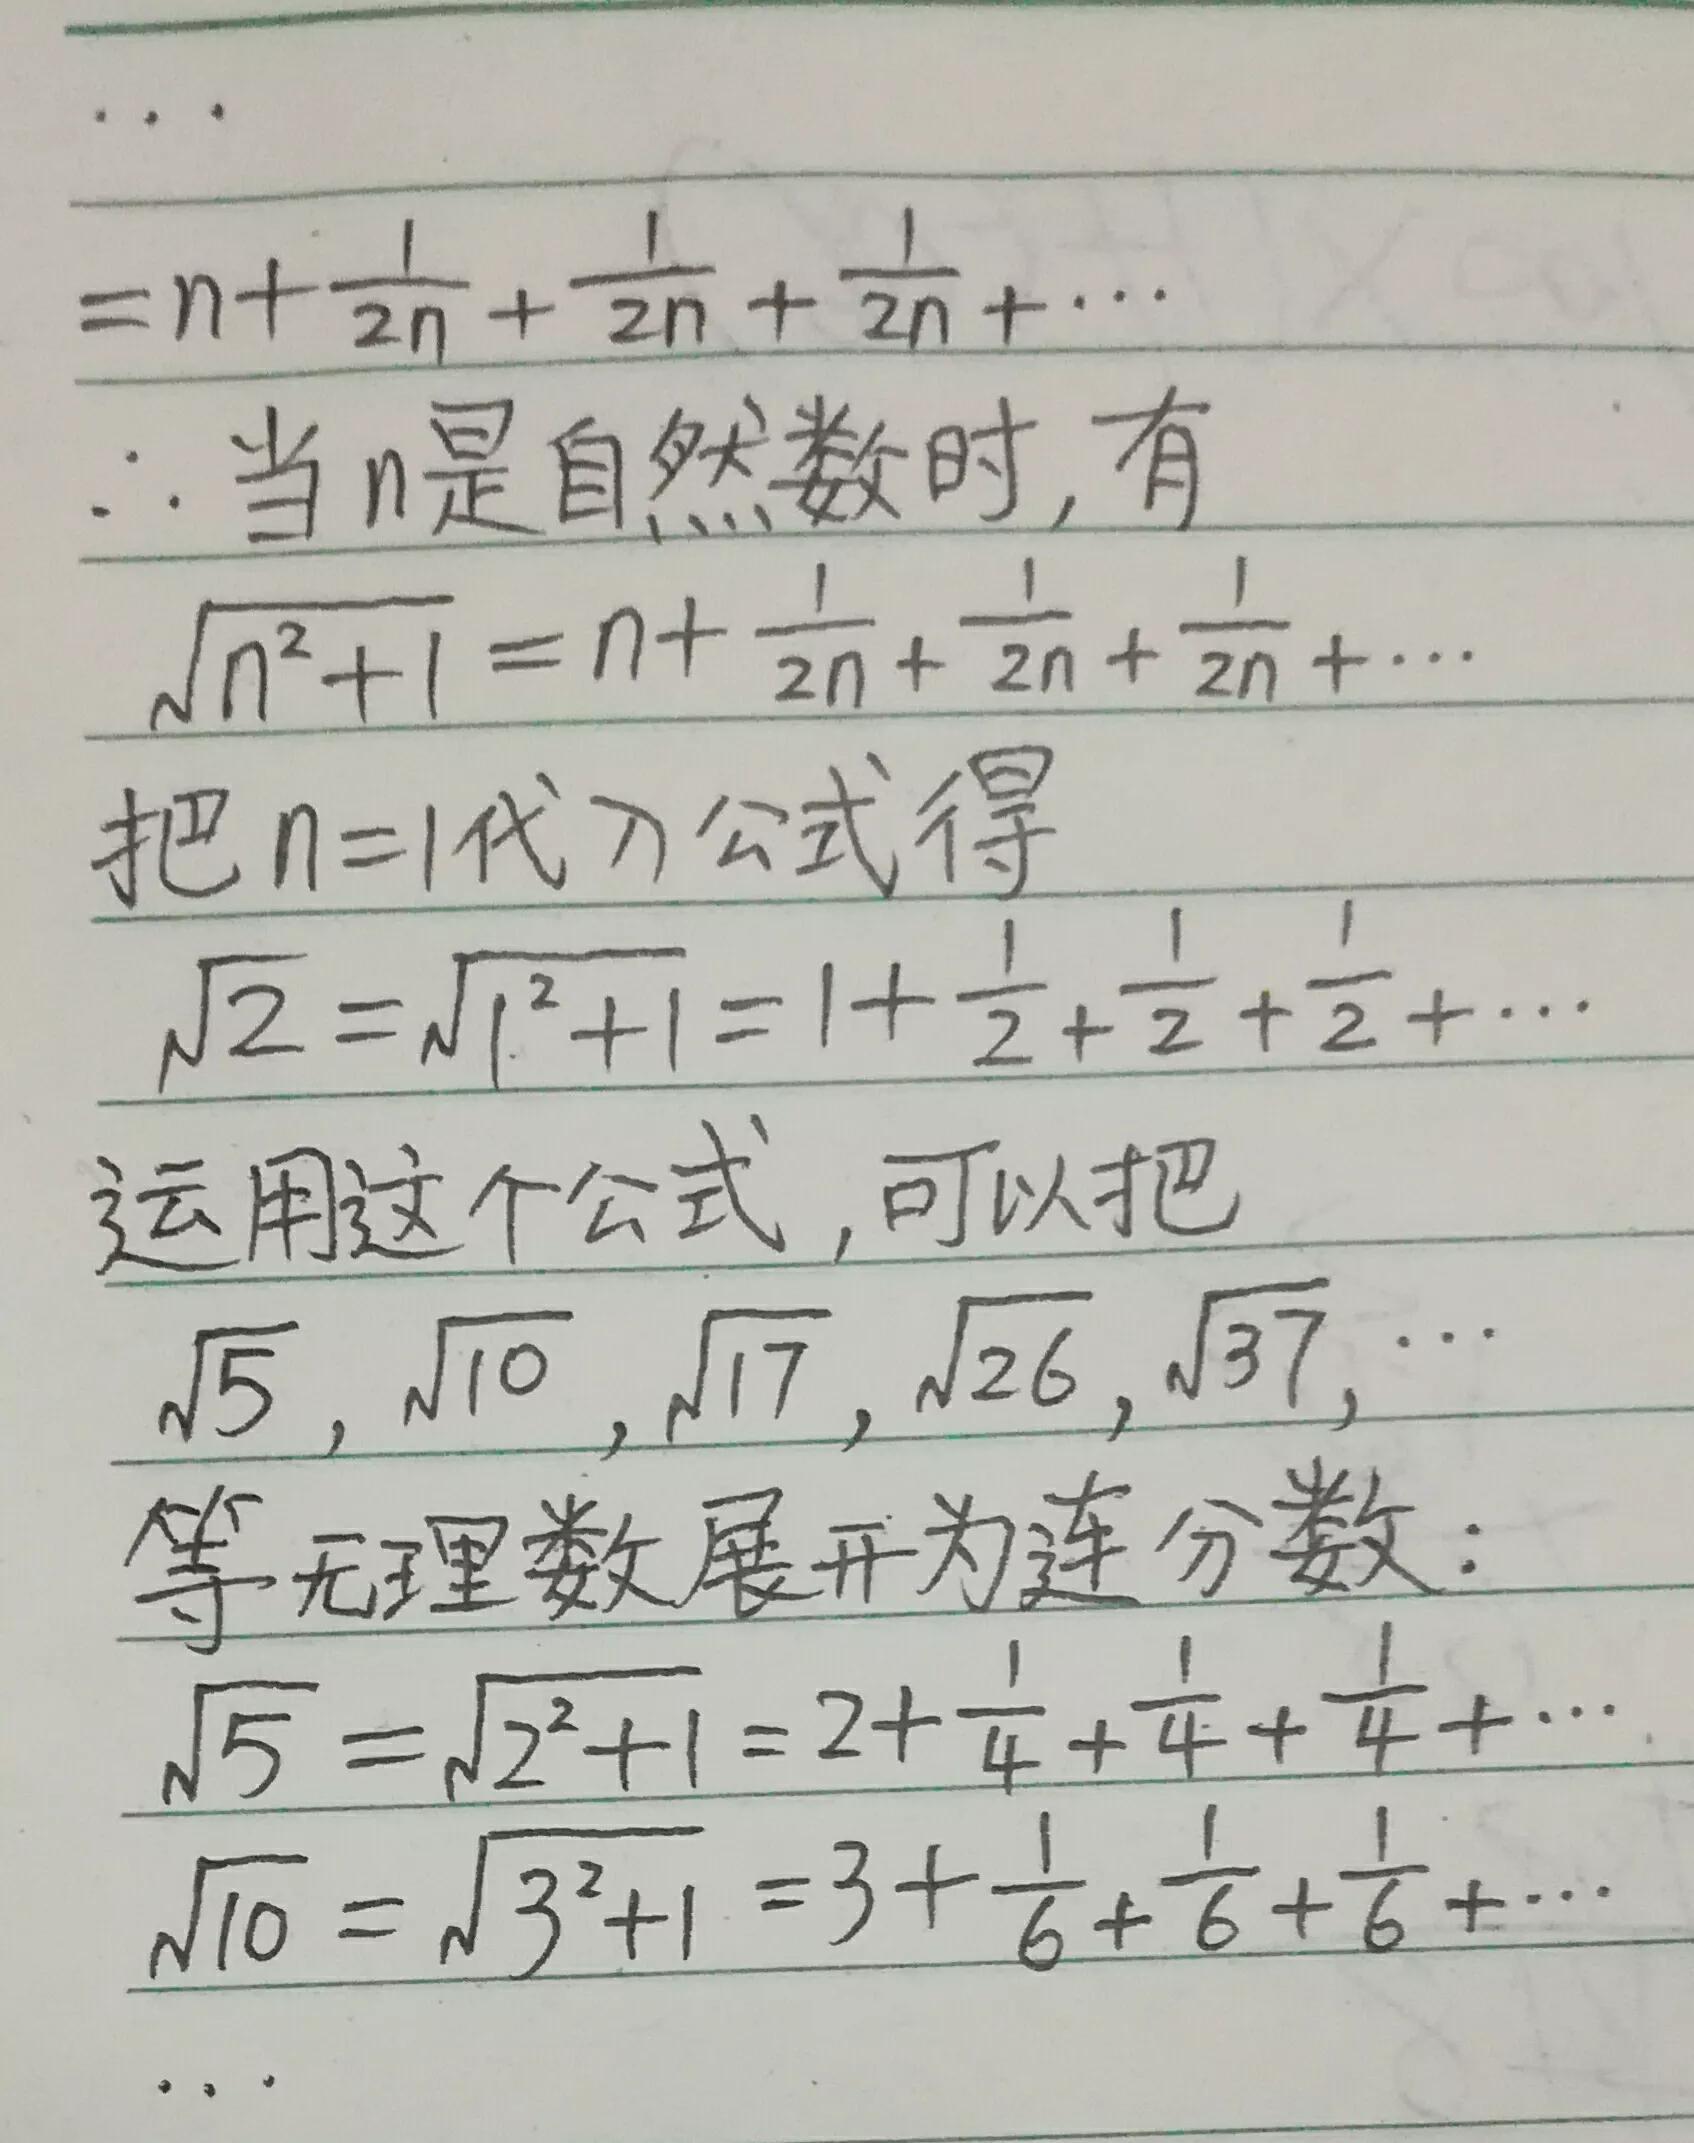 ...
=n+1/2n+1/2n+1/2n+···
∴当n是自然数时,有
√(n²+1)=n+1/2n+1/2n+1/2n+···
把n=1代入公式得
√2=√(1²+1)=1+1/2+1/2+1/2+···
运用这个公式,可以把
√5,√10,√17,√26,√37,···
等无理数展开为连分数:
√5=√(2²+1)=2+1/4+1/4+1/4+···
√10=√(3²+1)=3+1/6+1/6+1/6+···
...